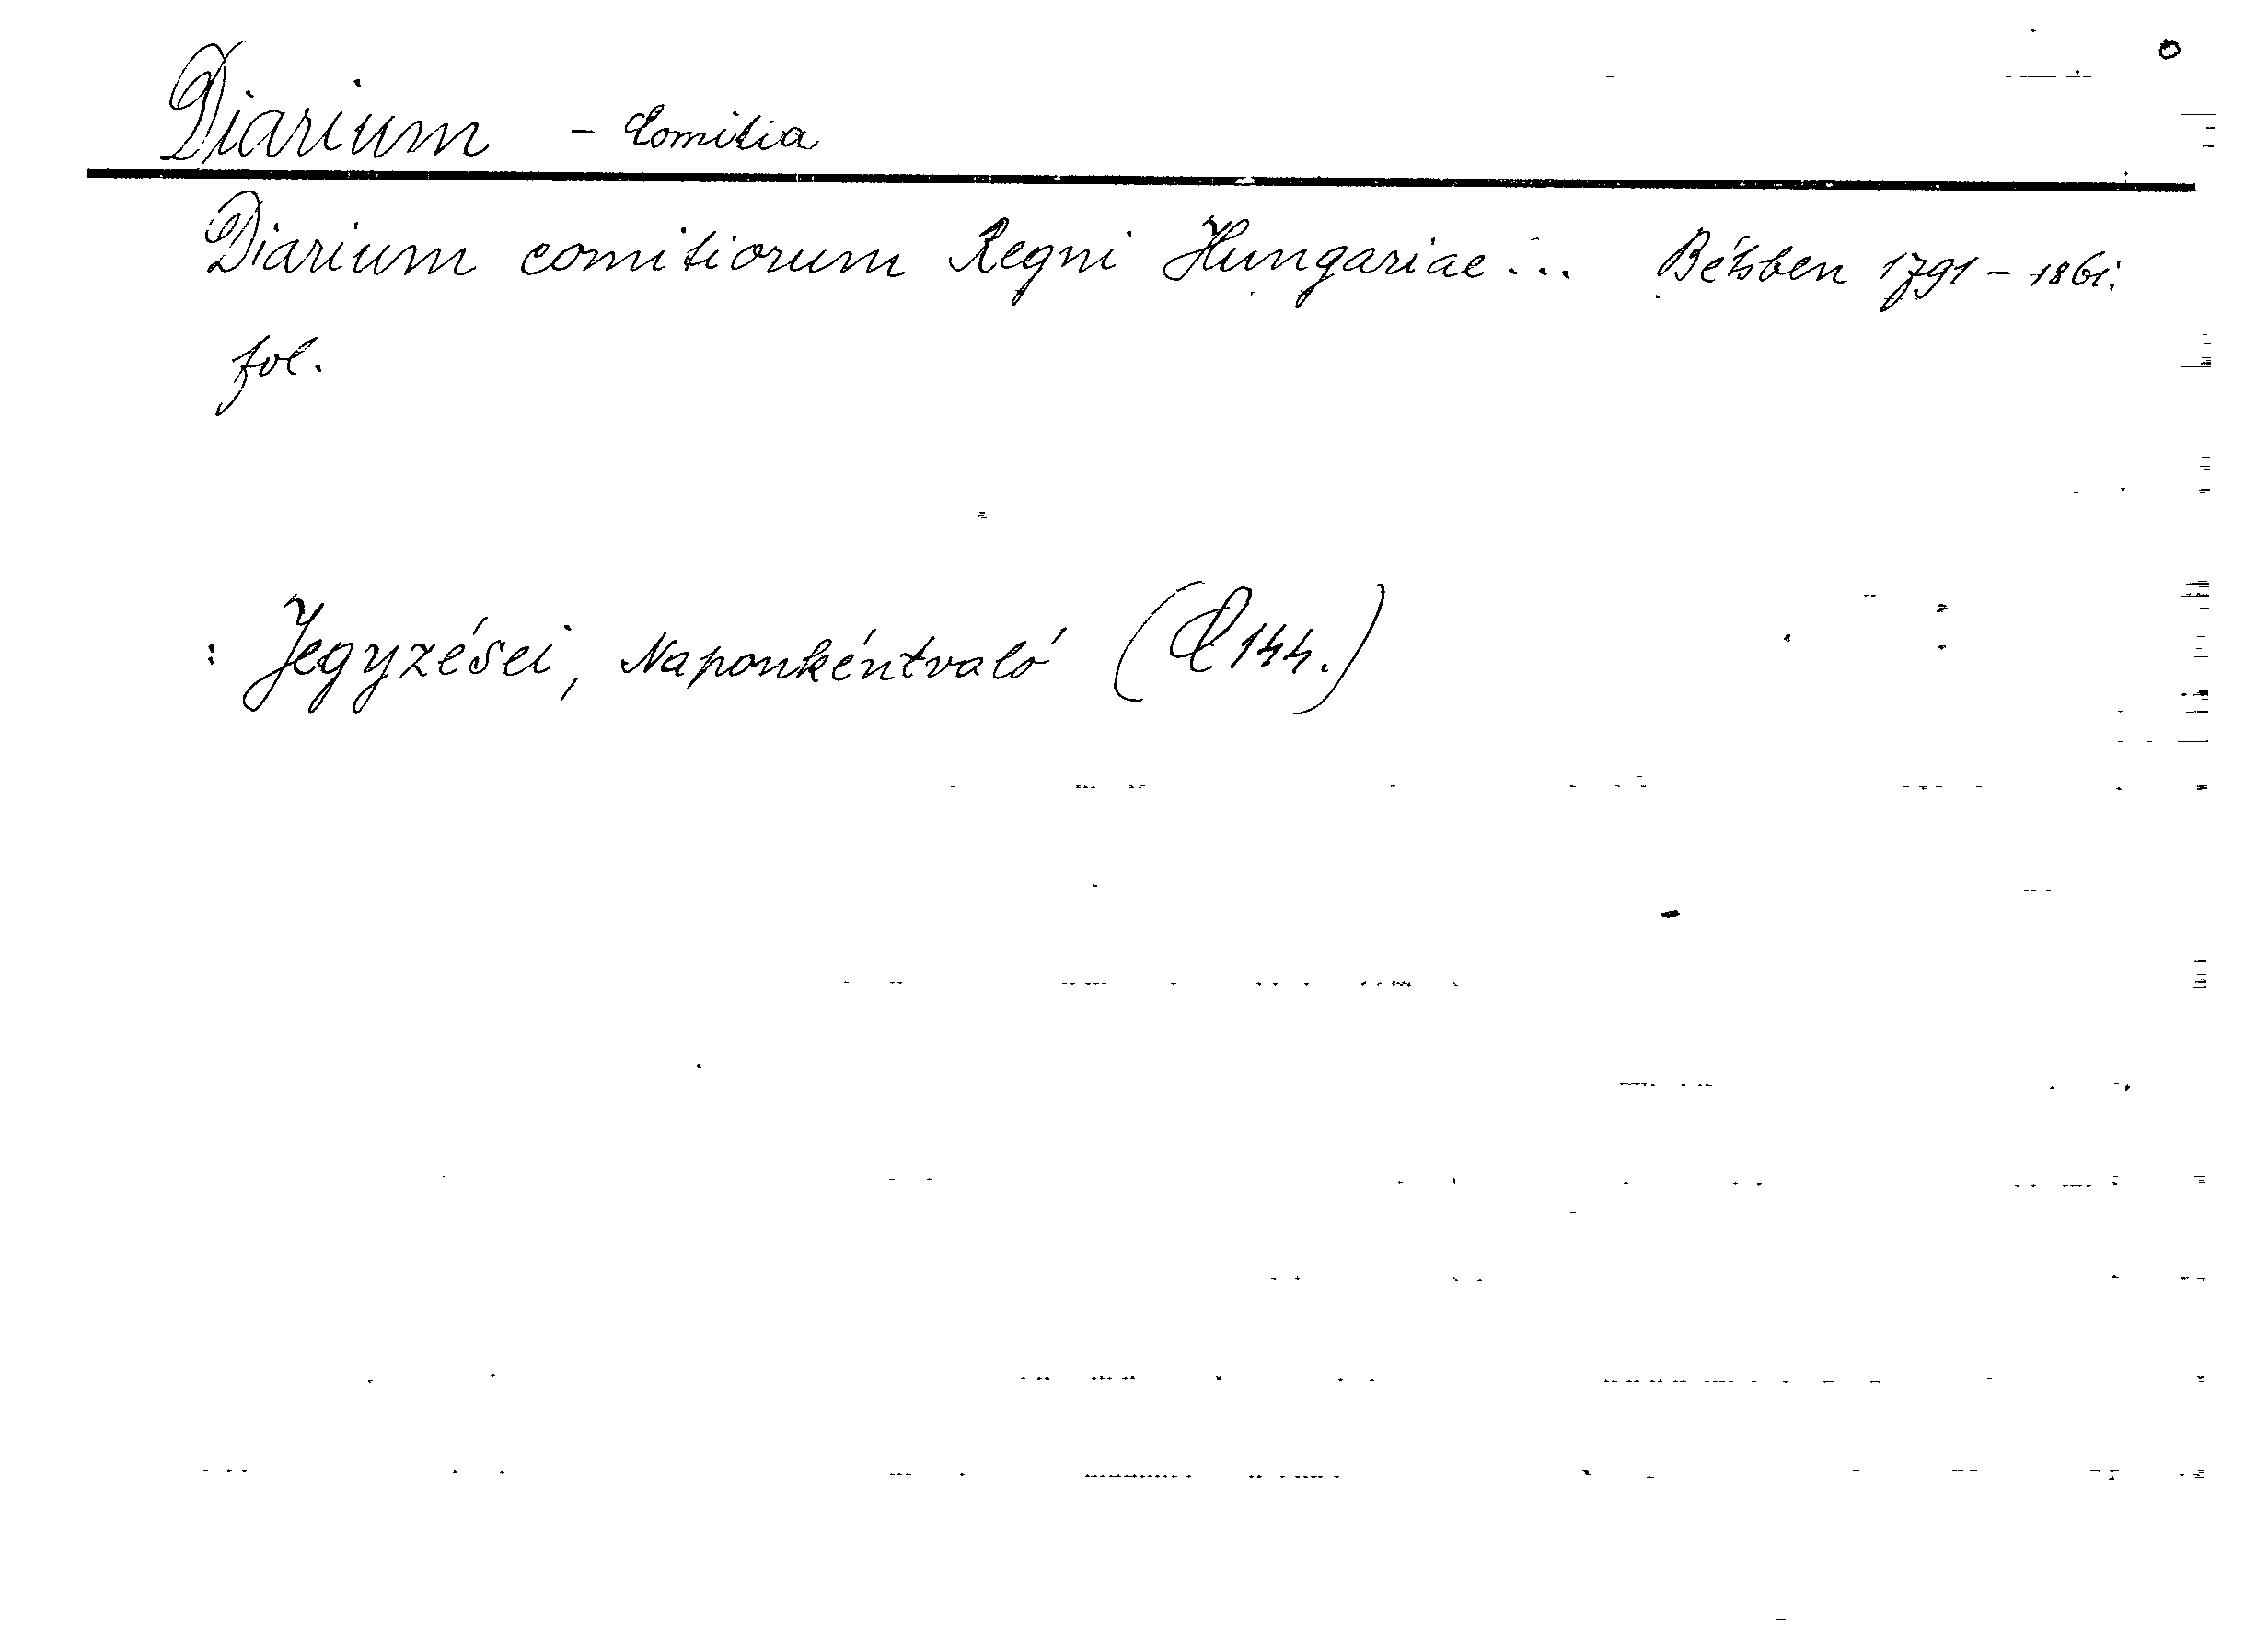 Diarium - Comitia
Diarium comitiorum Regni Hungariae... Bétsben 1791 - 1861.
fol.
: Jegyzései, Naponkéntvaló (C 144.)